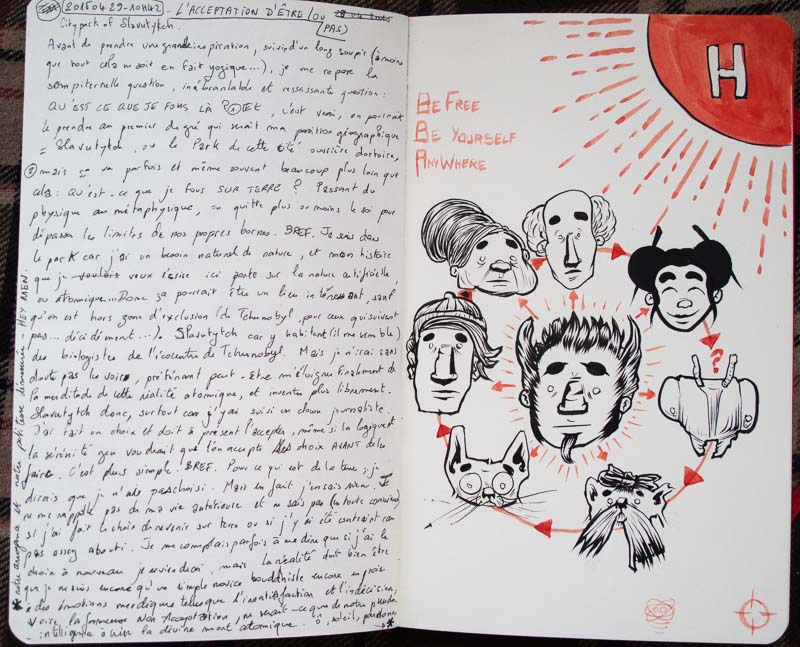 20150429-10H42 - L'ACCEPTATION D'ÊTRE/OU
(PAS)
City park of Slavutytch.
Avant de prendre une grande inspiration, suivie d'un long soupir (à moins
que tout cela ne soit en fait yogique...), je me repose la
sempiternelle question, inébranlable et ressassante question:
QU'EST CE QUE JE FOUS LÀ ? ET, c'est vrai, on pourrait
le prendre au premier degré qui serait ma position géographique
= Slavutytch, ou le Park de cette cité ouvrière dortoire,
② mais on va parfois et même souvent beaucoup plus loin que
cela: QU'EST-CE que je fous SUR TERRE ? Passant du
physique au métaphysique, on quitte plus ou moins le soi pour
dépasser les limites de nos propres bornes. BREF. Je suis dans
le park car j'ai un besoin naturel de nature, et mon histoire
que je voulais veux écrire ici porte sur la nature artificielle
ou atomique... Donc ça pourrait être un lieu intéressant, sauf
qu'on est hors zone d'exclusion (de Tchernobyl, pour ceux qui suivent
pas... décidément...). Slavutytch car y habitent (il me semble)
des biologistes de l'écocentre de Tchernobyl. Mais je n'irai sans
doute pas les voir, préférant peut-être m'éloigner finalement de
la merditude de cette réalité atomique, et inventer plus librement.
Slavutytch donc, surtout car j'y ai suivi un clown journaliste.
J'ai fait un choix et doit à présent l'accepter, même si la logique et
la sérénité zen voudraient que l'on accepte les choix AVANT de les
faire. C'est plus simple. BREF. Pour ce qui est de la terre; je
dirais que je n'ai pas choisi. Mais en fait j'en sais rien. Je
ne me rappelle pas de ma vie antérieure et ne sais pas (en toute conscience)
si j'ai fait le choix de revenir sur terre ou si j'y ai été contraint car
pas assez abouti. Je me complais parfois à me dire que si j'ai le
choix à nouveau je reviendrai, mais la réalité doit bien être
que je ne suis encore qu'un simple novice bouddhiste encore en proie
à des émotions merdiques telles que l'insatisfaction et l'indécision,
voire la fameuse Non Acceptation, ne serait-ce que de notre
intelligence à la divine mort atomique. Ô, soleil, pardonne
* notre arrogance et notre petitesse - HEY MEN.
H
BE FREE
BE YOURSELF
ANYWHERE
?